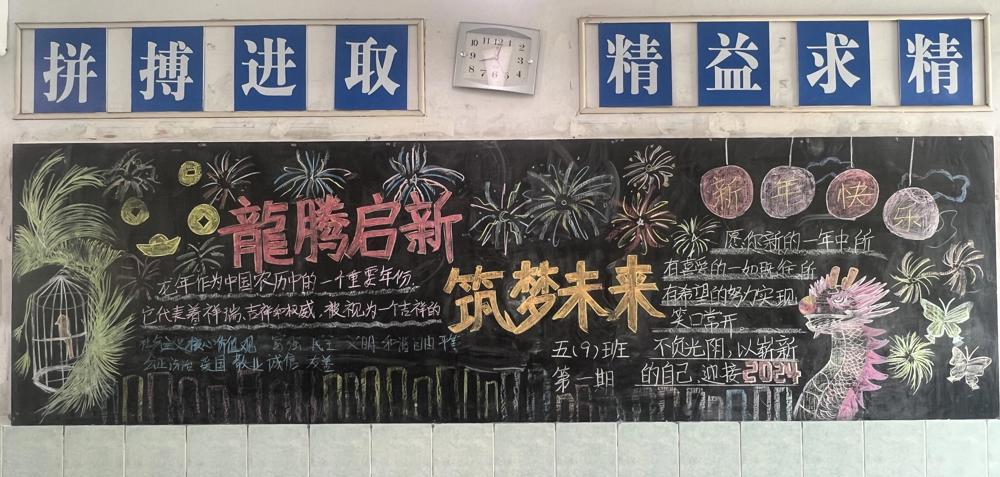 拼搏进取
精益求精
龍腾启新
龙年作为中国农历中的一个重要年份,
它代表着祥瑞,吉祥和权威,被视为一个吉祥的
社会主义核心价值观 富强 民主 文明 和谐 自由 平等
公正 法治 爱国 敬业 诚信 友善
筑梦未来
五(9)班
第一期
新年快乐
愿你新的一年中,所
有喜爱的一如既往,所
有希望的努力实现,
笑口常开
不负光阴,以崭新
的自己,迎接2024